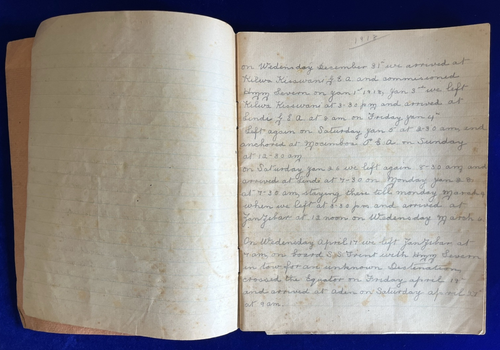 1918
on Wedensday December 31st we arrived at
Kilwa Kisswani G.E.A. and commissioned
Hmm Severn on Jan 1st 1918, Jan 3rd we left
Kilwa Kisswani at 3.30 pm and arrived at
Lindi G.E.A. at 8 am on Friday Jan 4th
left again on Saturday Jan 5th at 8.30 am and
anchored at Mocimboa P.E.A. on Sunday
at 12-30 am
on Saturday Jan 20 we left again 5-30 am and
arrived at Lindi at 7-30 on Monday Jan
at 7-30 am staying there till monday March 4
when we left at 3.30 pm and arrived at
Zanzebar at 12 noon on Wednesday March 6
On Wednesday April 17 we left Zanzebar at
7 am on board S.S. Trent with Hmm Severn
in tow for an unknown Destination
crossed the Equator on Friday april 19
and arrived at aden on Saturday april
at 9 am